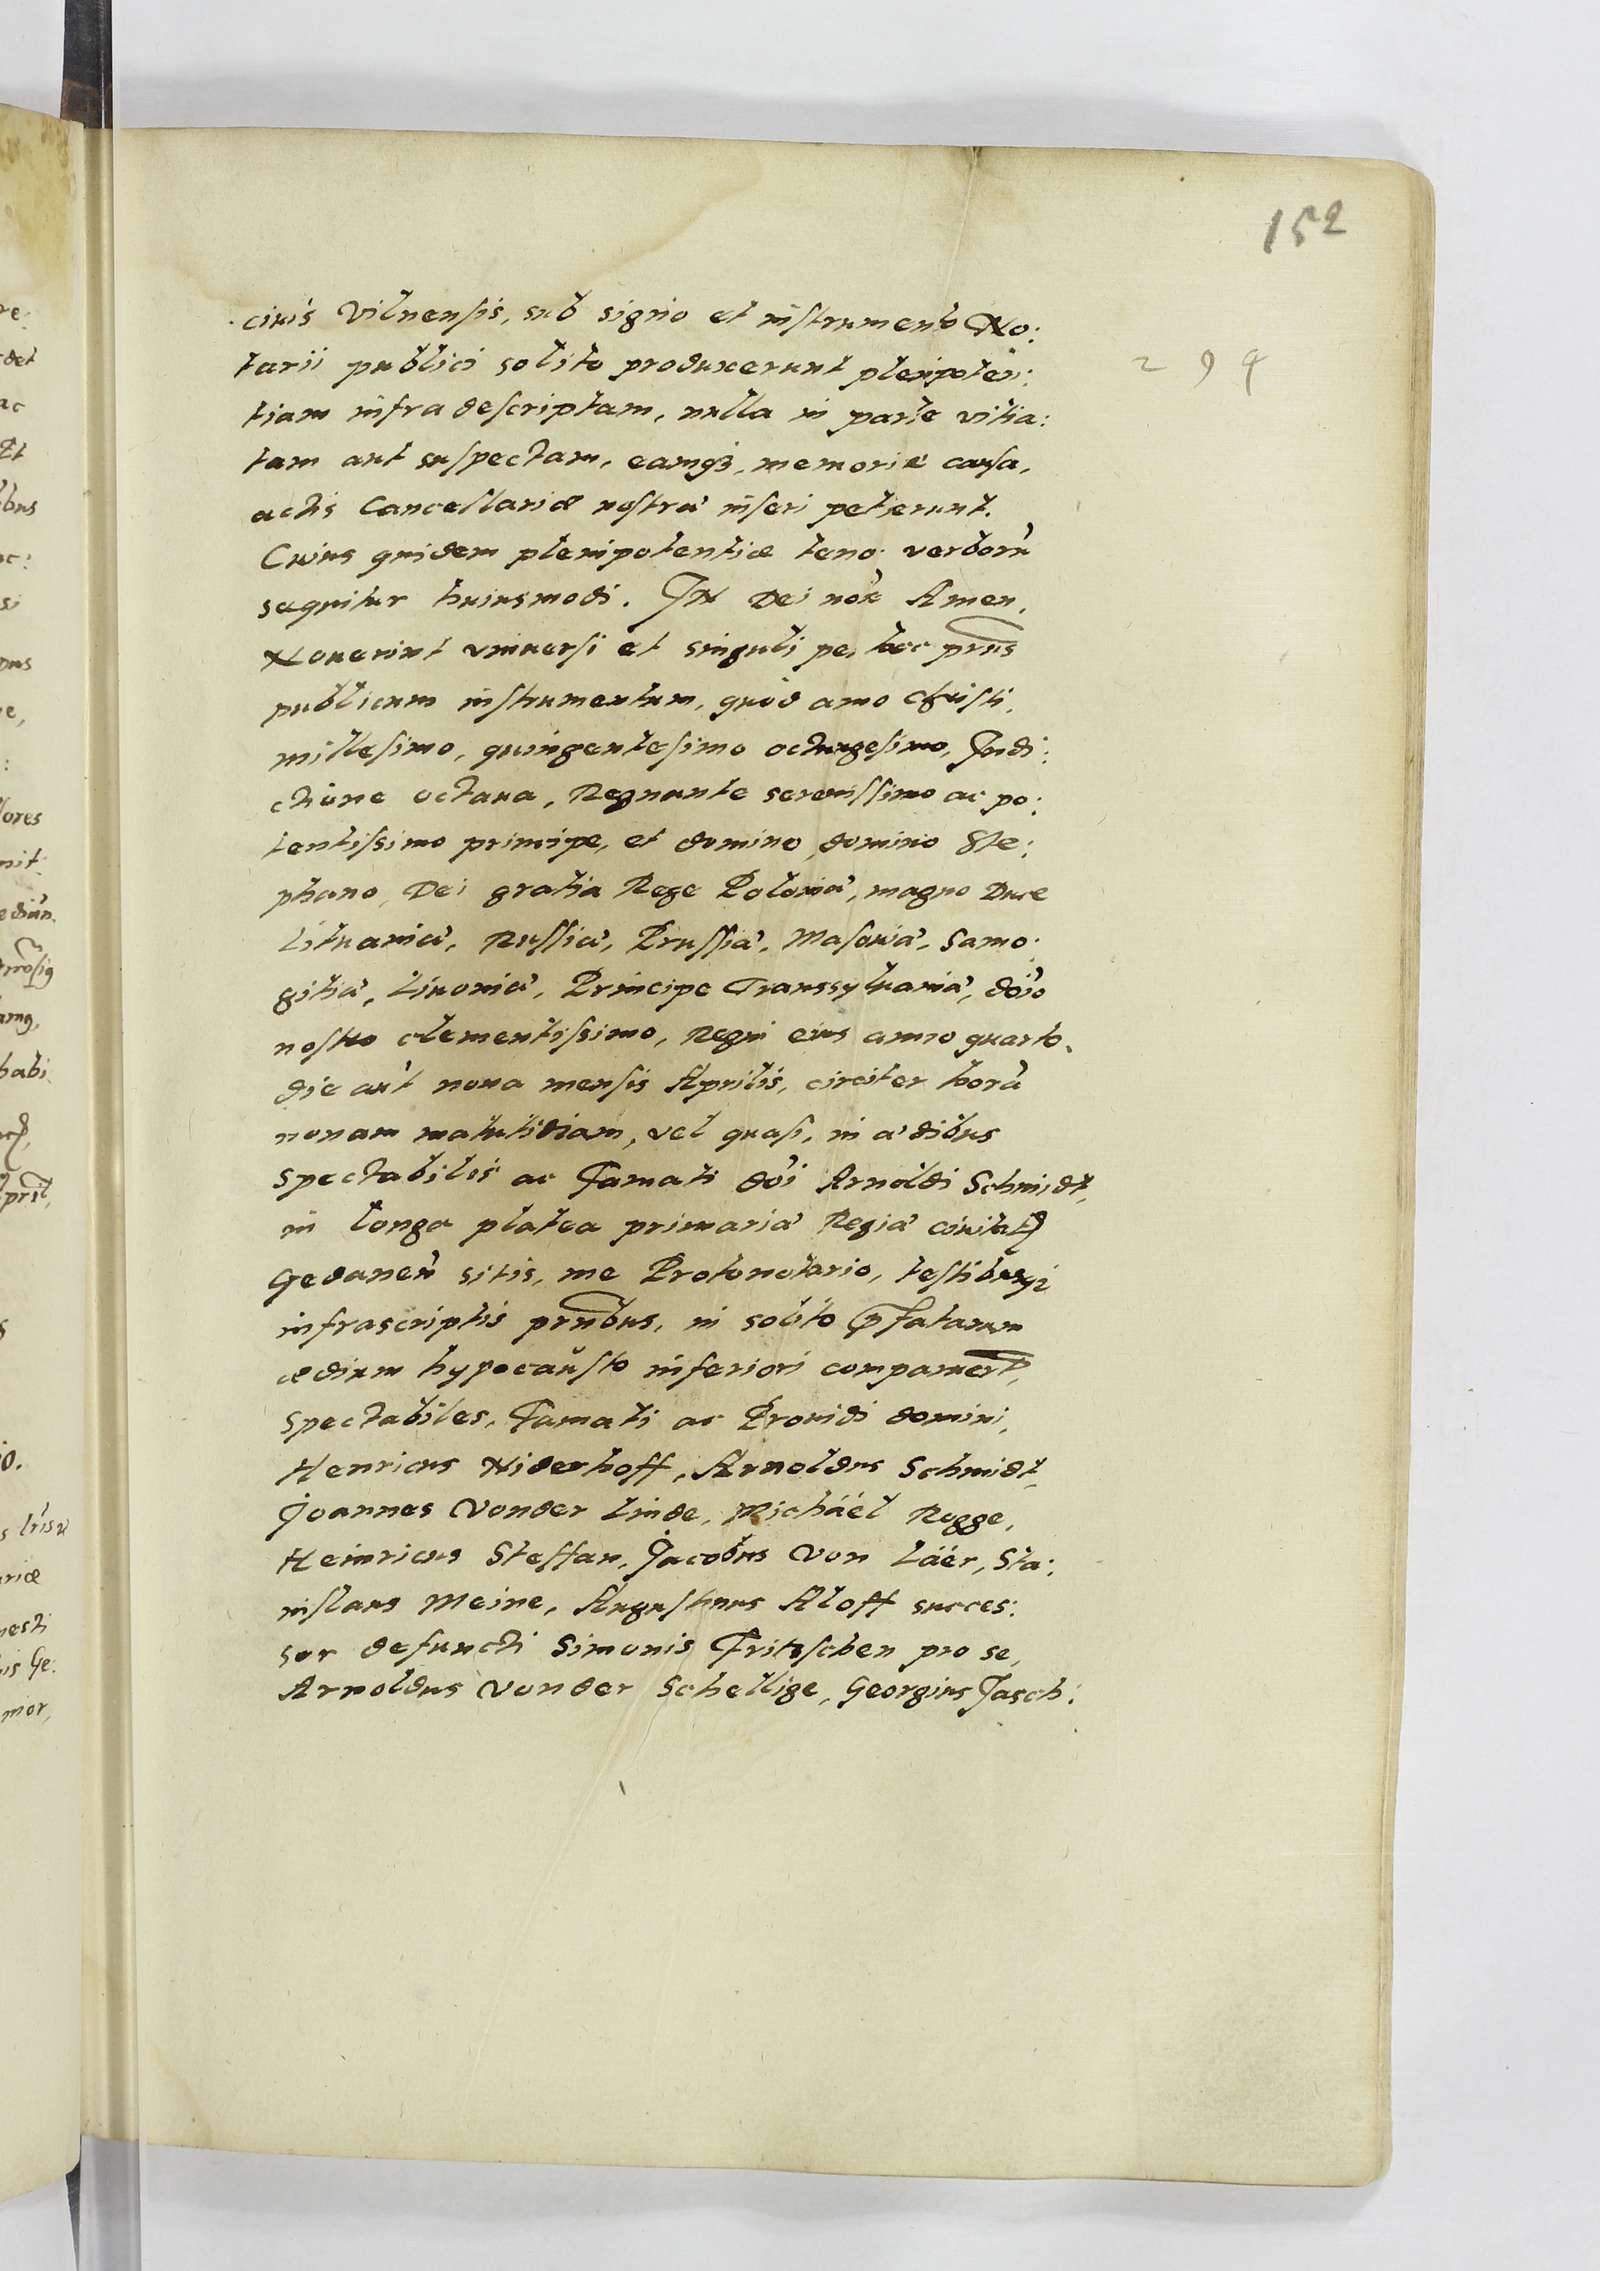 152
ciuis Vilnensis, sub signo et instrumento No:
299
tarii publici solito produxerunt plenipoten:
tiam infra descriptam, nulla in parte vitia:
tam aut suspectam, eamqȝ, memoriæ causa,
actis Cancellariæ nostræ inseri petierunt.
Cuius quidem plenipotentiæ teno: verborũ
sequitur huiusmodi. IN Dei noı̃e Amen.
Nouerint vniuersi et singuli per hoc prñs
publicum instrumentum, quòd anno Christi,
millesimo, quingentesimo octuagesimo, Indi:
ctione octaua, Regnante serenissimo ac po:
tentissimo principe, et domino, domino Ste:
phano, Dei gratia Rege Poloniæ, magno Duce
Lituaniæ, Russiæ, Prussiæ, Masouiæ, Samo:
gitiæ, Liuoniæ, Principe Transsyluaniæ, dño
nostro clementissimo, Regni eius anno quarto,
die aut̃ nona mensis Aprilis, circiter horã
nonam matutinam, vel quasi, in ædibus
Spectabilis ac Famati dñi Arnoldi Schmidt,
in longa platea primariæ Regiæ ciuitatis
Gedaneñ sitis, me Protonotario, testibusqȝ
infrascriptis prñtibus, in solito præfatarum
ædium hypocausto inferiori comparuerũt,
Spectabiles, Famati ac Prouidi domini,
Henricus Niderhoff, Arnoldus Schmidt,
Joannes Vonder Linde, Michäel Rogge,
Heinricus Steffan, Jacobus Von Läer, Sta:
nislaus Meine, Augustinus Aloff succes:
sor defuncti Simonis Fritzschen pro se,
Arnoldus Vonder Schellige, Georgius Jasch: